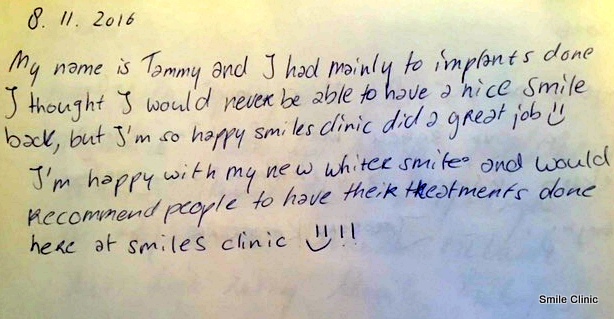 8. 11. 2016
My name is Tammy and I had mainly to implants done
I thought I would never be able to have a nice smile
back, but I'm so happy smiles clinic did a great job
I'm happy with my new whiter smile and would
recommend people to have their treatments done
here at smiles clinic !!
Smile Clinic